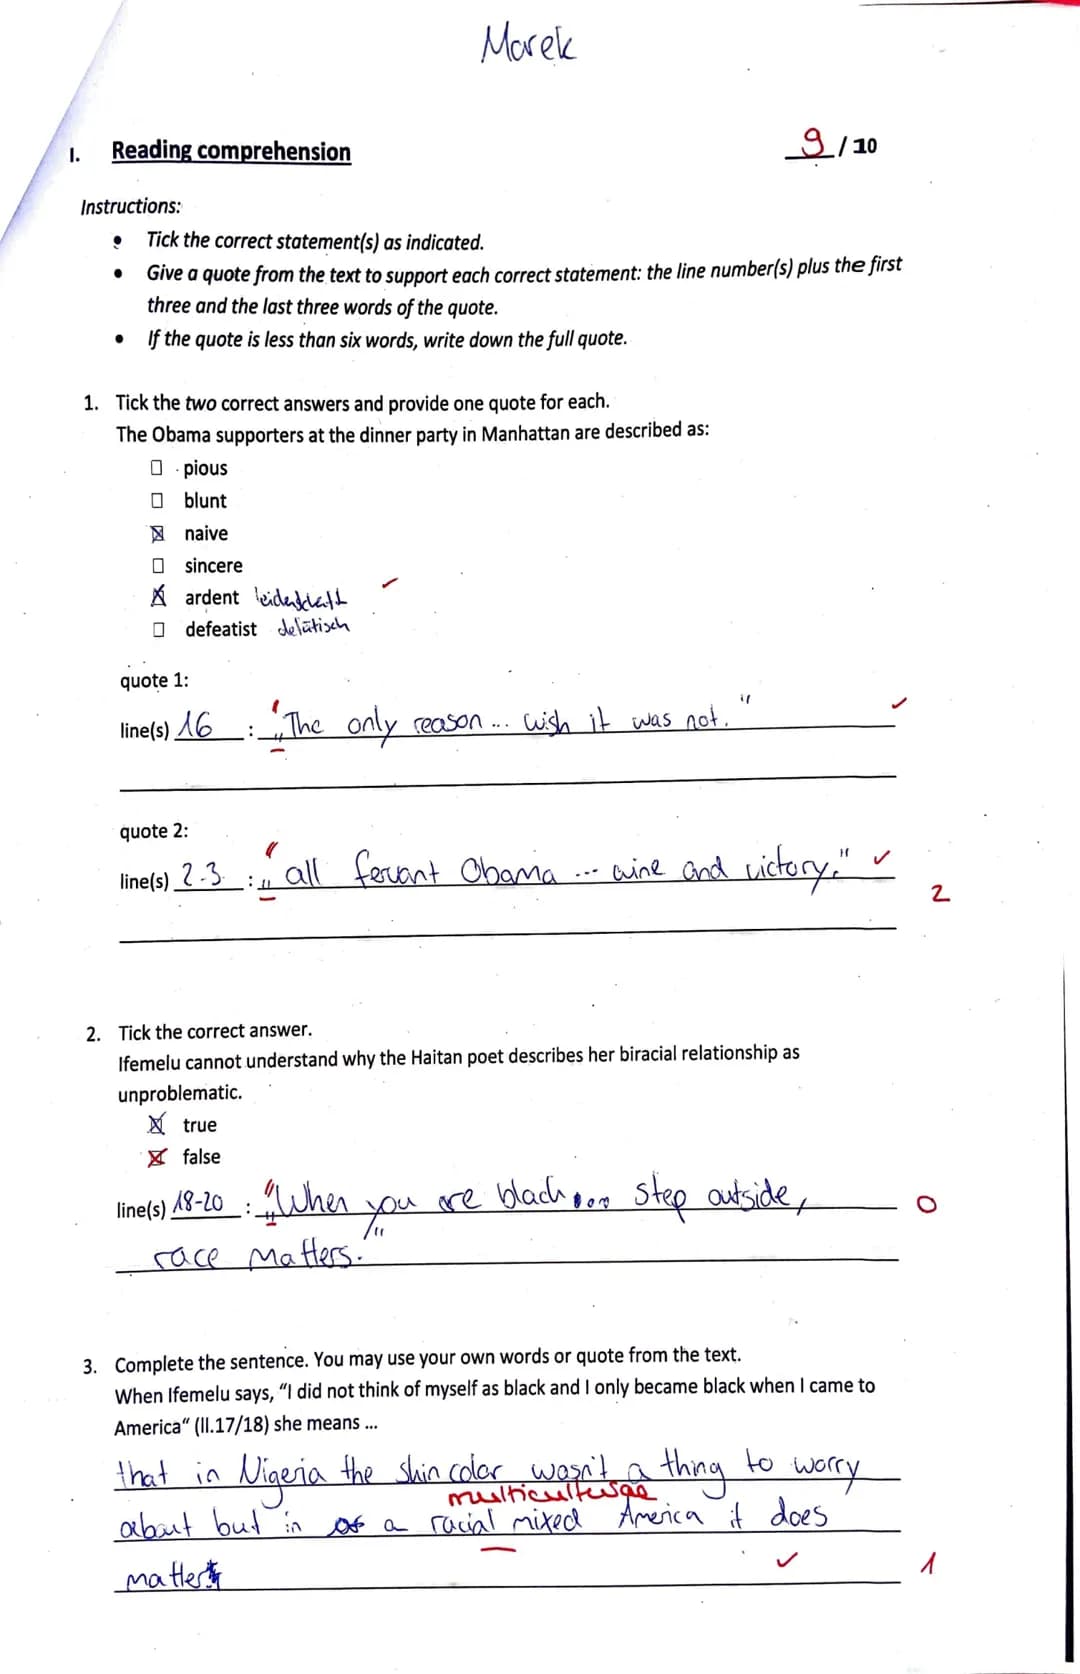 Marek
I. Reading comprehension 9 / 10
Instructions:
• Tick the correct statement(s) as indicated.
• Give a quote from the text to support each correct statement: the line number(s) plus the first
three and the last three words of the quote.
• If the quote is less than six words, write down the full quote.
1. Tick the two correct answers and provide one quote for each.
The Obama supporters at the dinner party in Manhattan are described as:
☐ pious
☐ blunt
☒ naive
☐ sincere
☒ ardent ✓
☐ defeatist
quote 1:
line(s) 16 : „The only reason ... wish it was not." ✓
quote 2:
line(s) 2-3 : „all fervant Obama ... wine and victory." ✓
2
2. Tick the correct answer.
Ifemelu cannot understand why the Haitan poet describes her biracial relationship as
unproblematic.
☒ true
☒ false
line(s) 18-20 : „When you are black ... step outside, 0
race matters."
3. Complete the sentence. You may use your own words or quote from the text.
When Ifemelu says, "I did not think of myself as black and I only became black when I came to
America" (ll.17/18) she means ...
that in Nigeria the skin color wasn't a thing to worry
multicultural
about but in a racial mixed America it does
matter ✓ 1